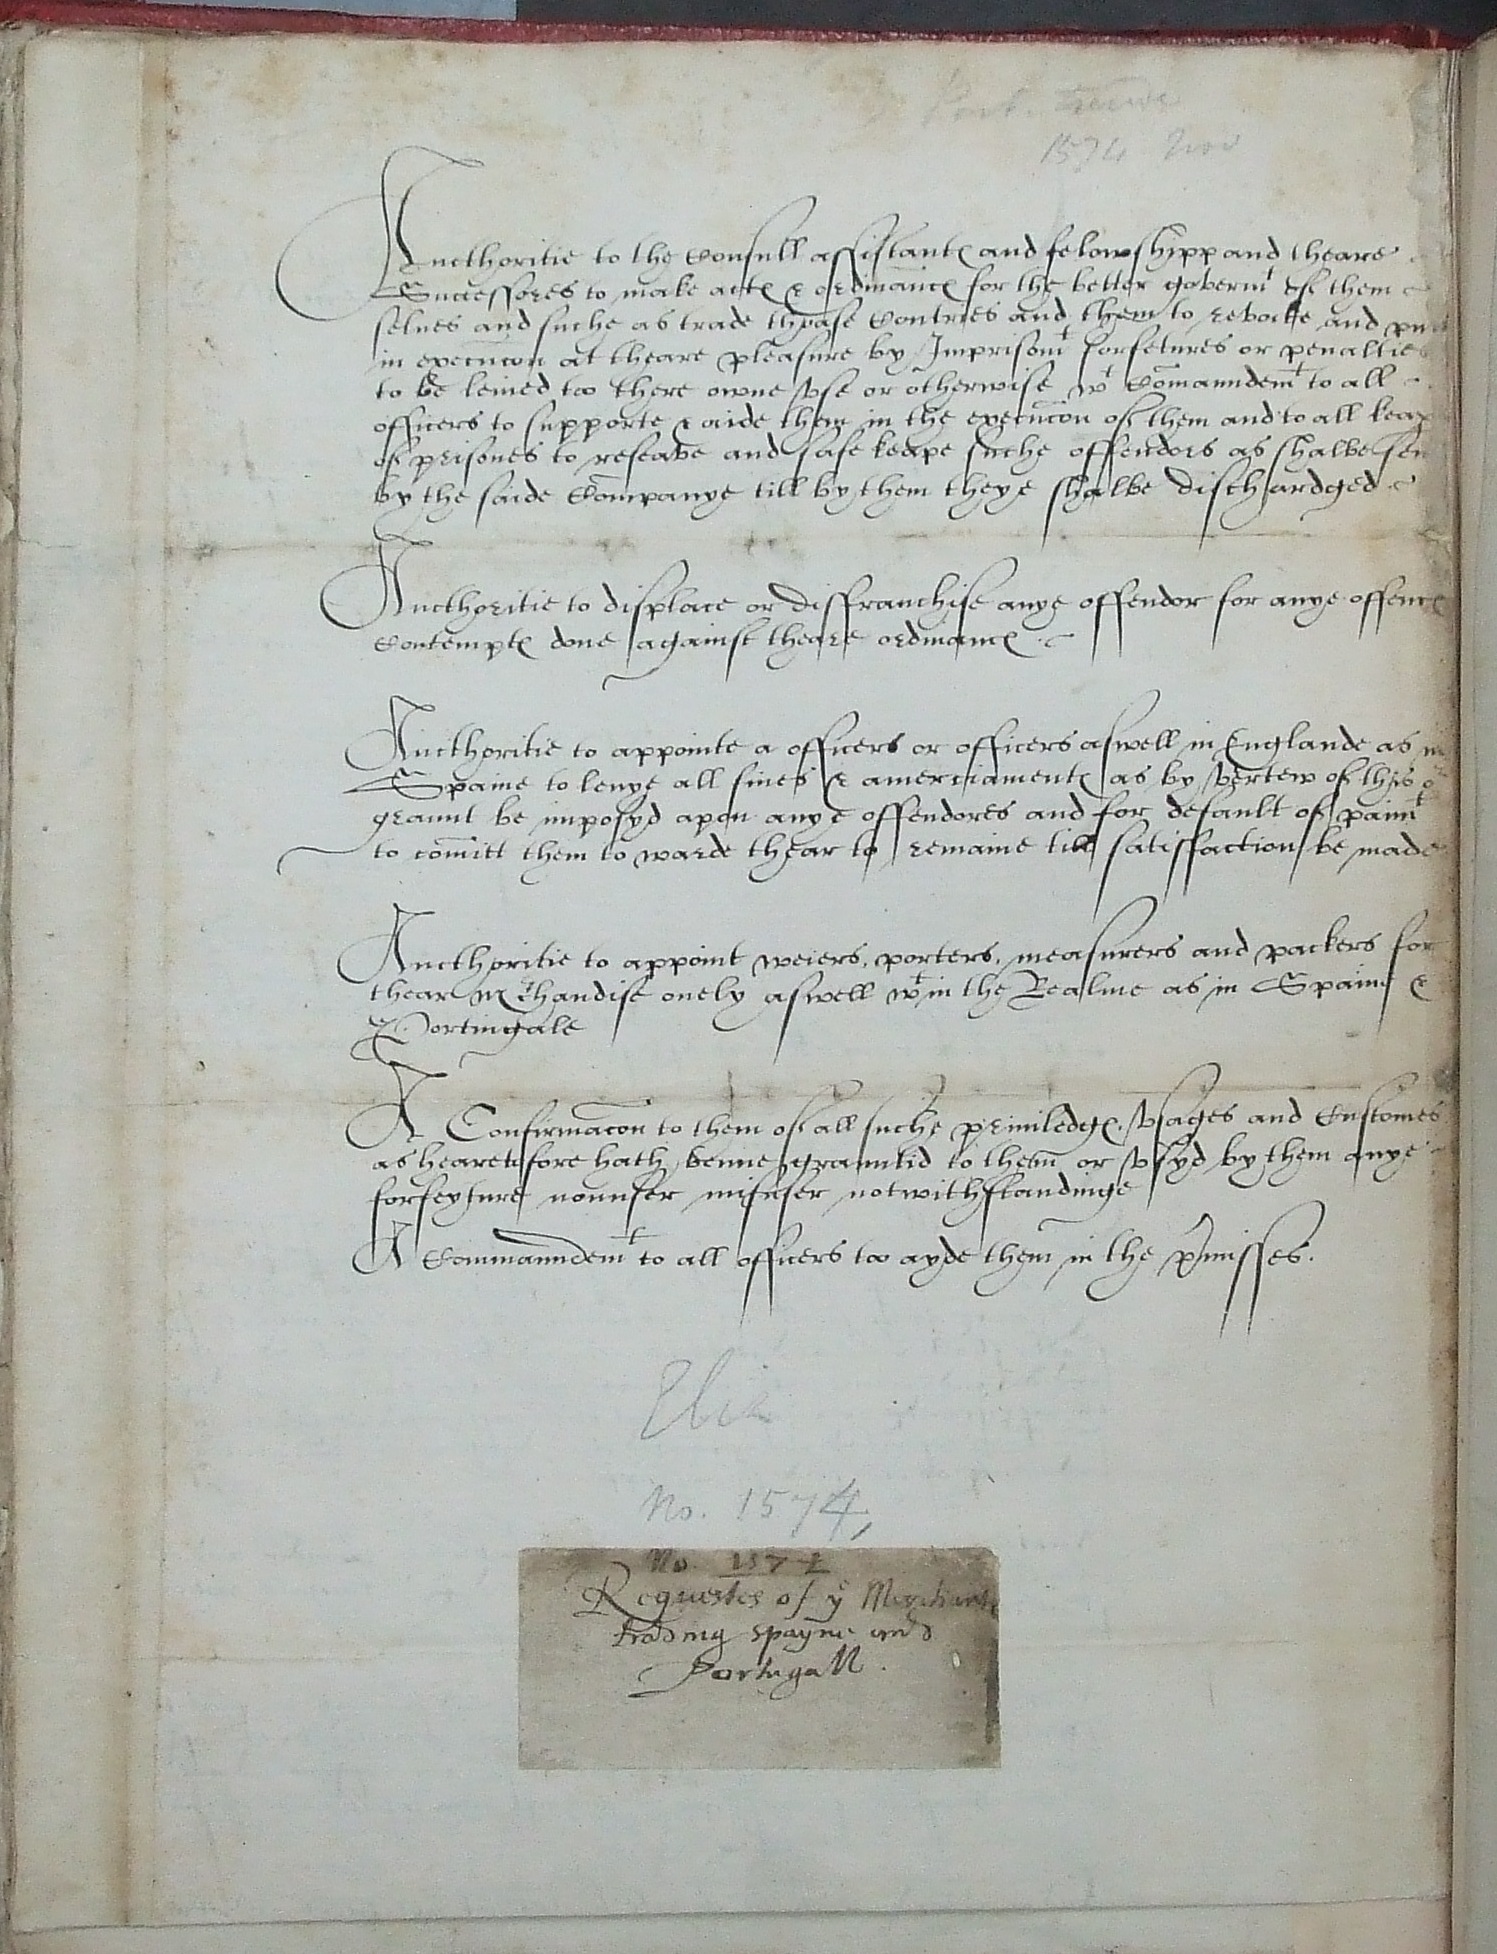 1574 Nov
Aucthoritie to the Consull assistantes and felowshipp and theare
Successores to make actes & ordinances for the better governmt of them
selues and suche as trade those Contries and them to revocke and put
in execucon at theare pleasure by Imprisonmt forfetures or penalties
to be leuied too there owne vse or otherwise wt Comanndemt to all
officers to supporte & aide them in the execucon of them and to all keap
of prisones to reseave and safe keape suche offendors as shalbe sen
by the saide Companye till by them theye shalbe dischardged
Aucthoritie to displace or disfranchise anye offendor for anye offence
Contemptes done against theare ordinances
Aucthoritie to appointe a officers or officers aswell in Englande as in
Spaine to leuye all fines & amerciamentes as by vertew of this
graunt be imposyd apon anye offendores and for default of paimt
to comitt them to warde thear to remaine till satisfaction be made
Aucthoritie to appoint weiers, porters, measurers and packers for
thear mrchandise onely aswell wtin the Realme as in Spaine &
Portingale
A Confirmacon to them of all suche priuiledges, vsages and Customes
as hearetofore hath benne grauntid to them or vsyd by them anye
forfeyture nonuser misuser notwithstandinge
A Commanndemt to all officers too ayde them in the prmisses.
Eliz
No. 1574,
No. 1574
Requestes of ye Merchantes
trading Spayne and
Portugall.